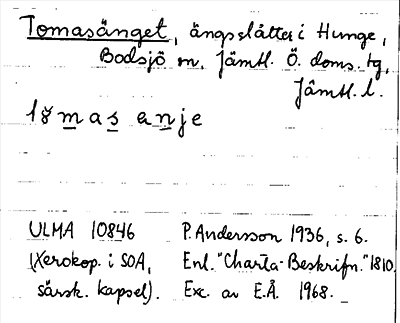 Tomasänget, ängsslåtter i Hunge,
Bodsjö sn, Jämtl. Ö. doms. tg,
Jämtl. l.
anje
ULMA 10846 P. Andersson 1936, s. 6.
(Xerokop. i SOA, Enl. "Charta-Beskrifn." 1810.
särsk. kapsel). Exc. av E.Å. 1968.